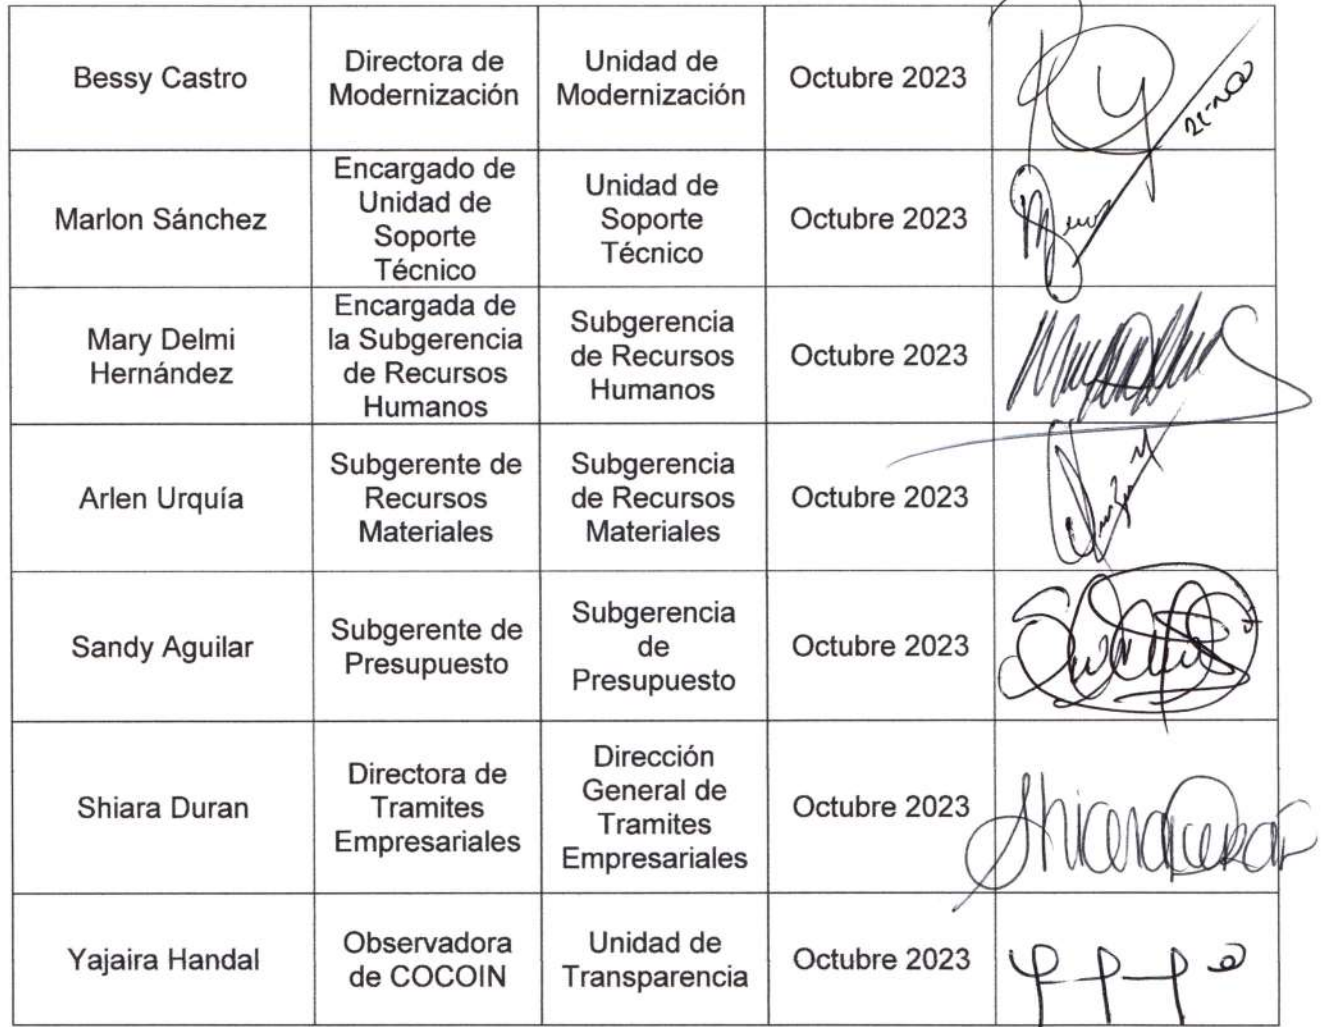 Bessy Castro
Directora de
Modernización
Unidad de
Modernización
Octubre 2023
Marlon Sánchez
Encargado de
Unidad de
Soporte
Técnico
Unidad de
Soporte
Técnico
Octubre 2023
Mary Delmi
Hernández
Encargada de
la Subgerencia
de Recursos
Humanos
Subgerencia
de Recursos
Humanos
Octubre 2023
Arlen Urquía
Subgerente de
Recursos
Materiales
Subgerencia
de Recursos
Materiales
Octubre 2023
Sandy Aguilar
Subgerente de
Presupuesto
Subgerencia
de
Presupuesto
Octubre 2023
Shiara Duran
Directora de
Tramites
Empresariales
Dirección
General de
Tramites
Empresariales
Octubre 2023
Yajaira Handal
Observadora
de COCOIN
Unidad de
Transparencia
Octubre 2023